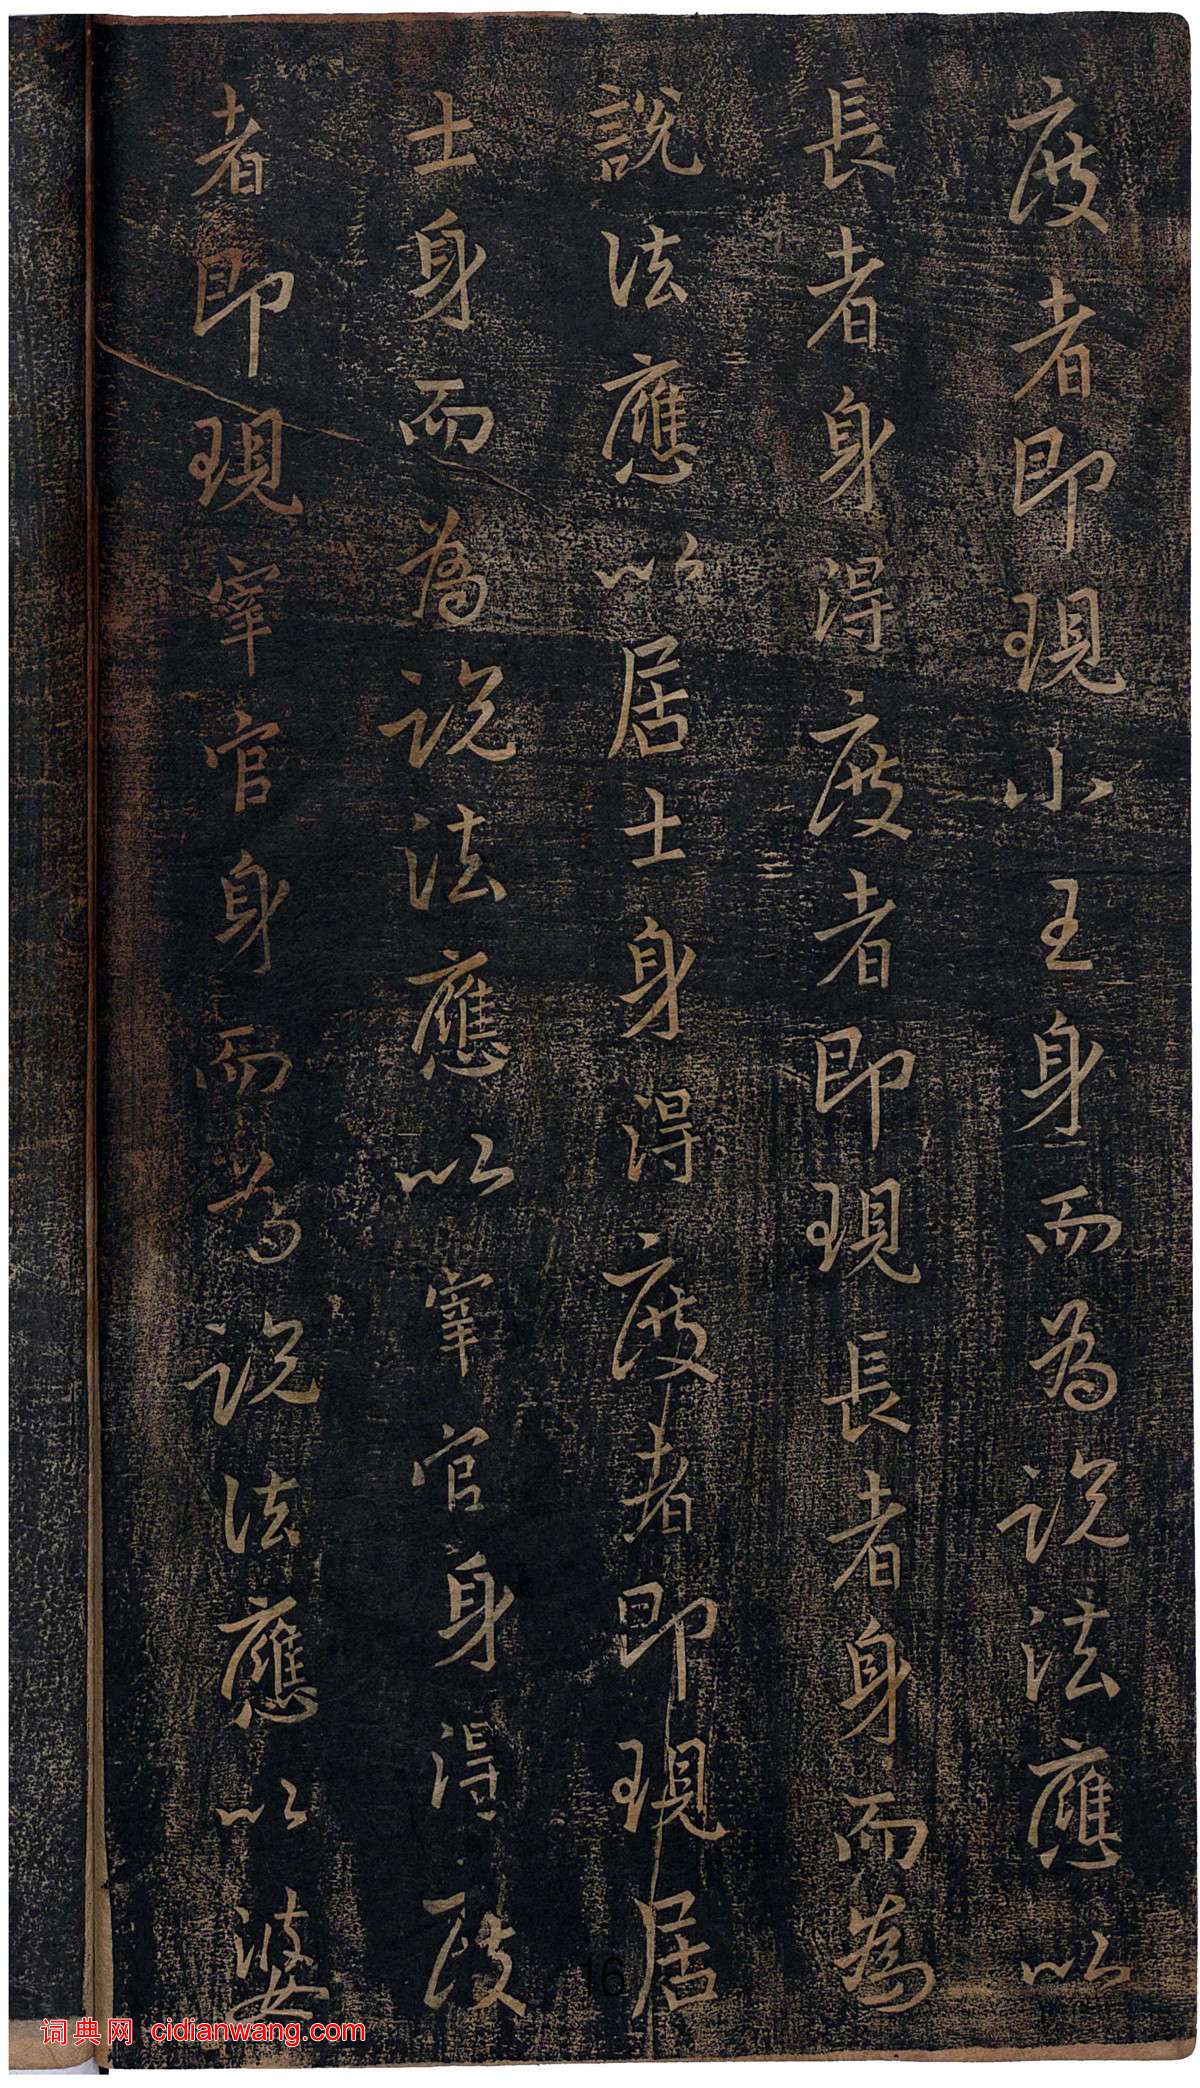 度者即現小王身而為說法應以
長者身得度者即現長者身而為
說法應以居士身得度者即現居
士身而為說法應以宰官身得度
者即現宰官身而為說法應以婆
16
词典网 cidianwang.com